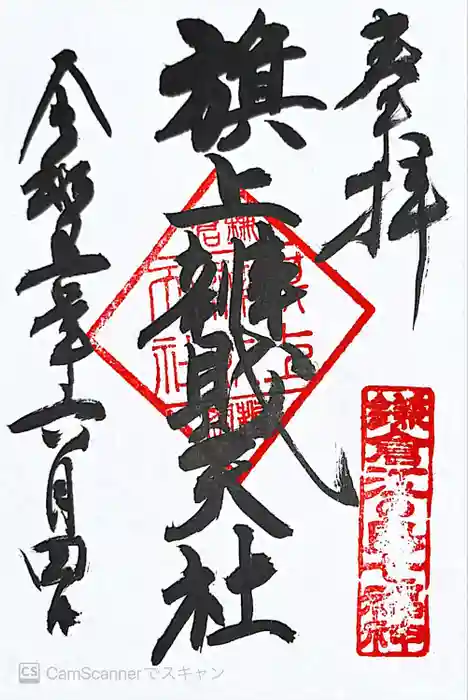 奉拝
旗上辨財天社
令和五年六月四日
鎌倉江の島七福神
CS CamScannerでスキャン